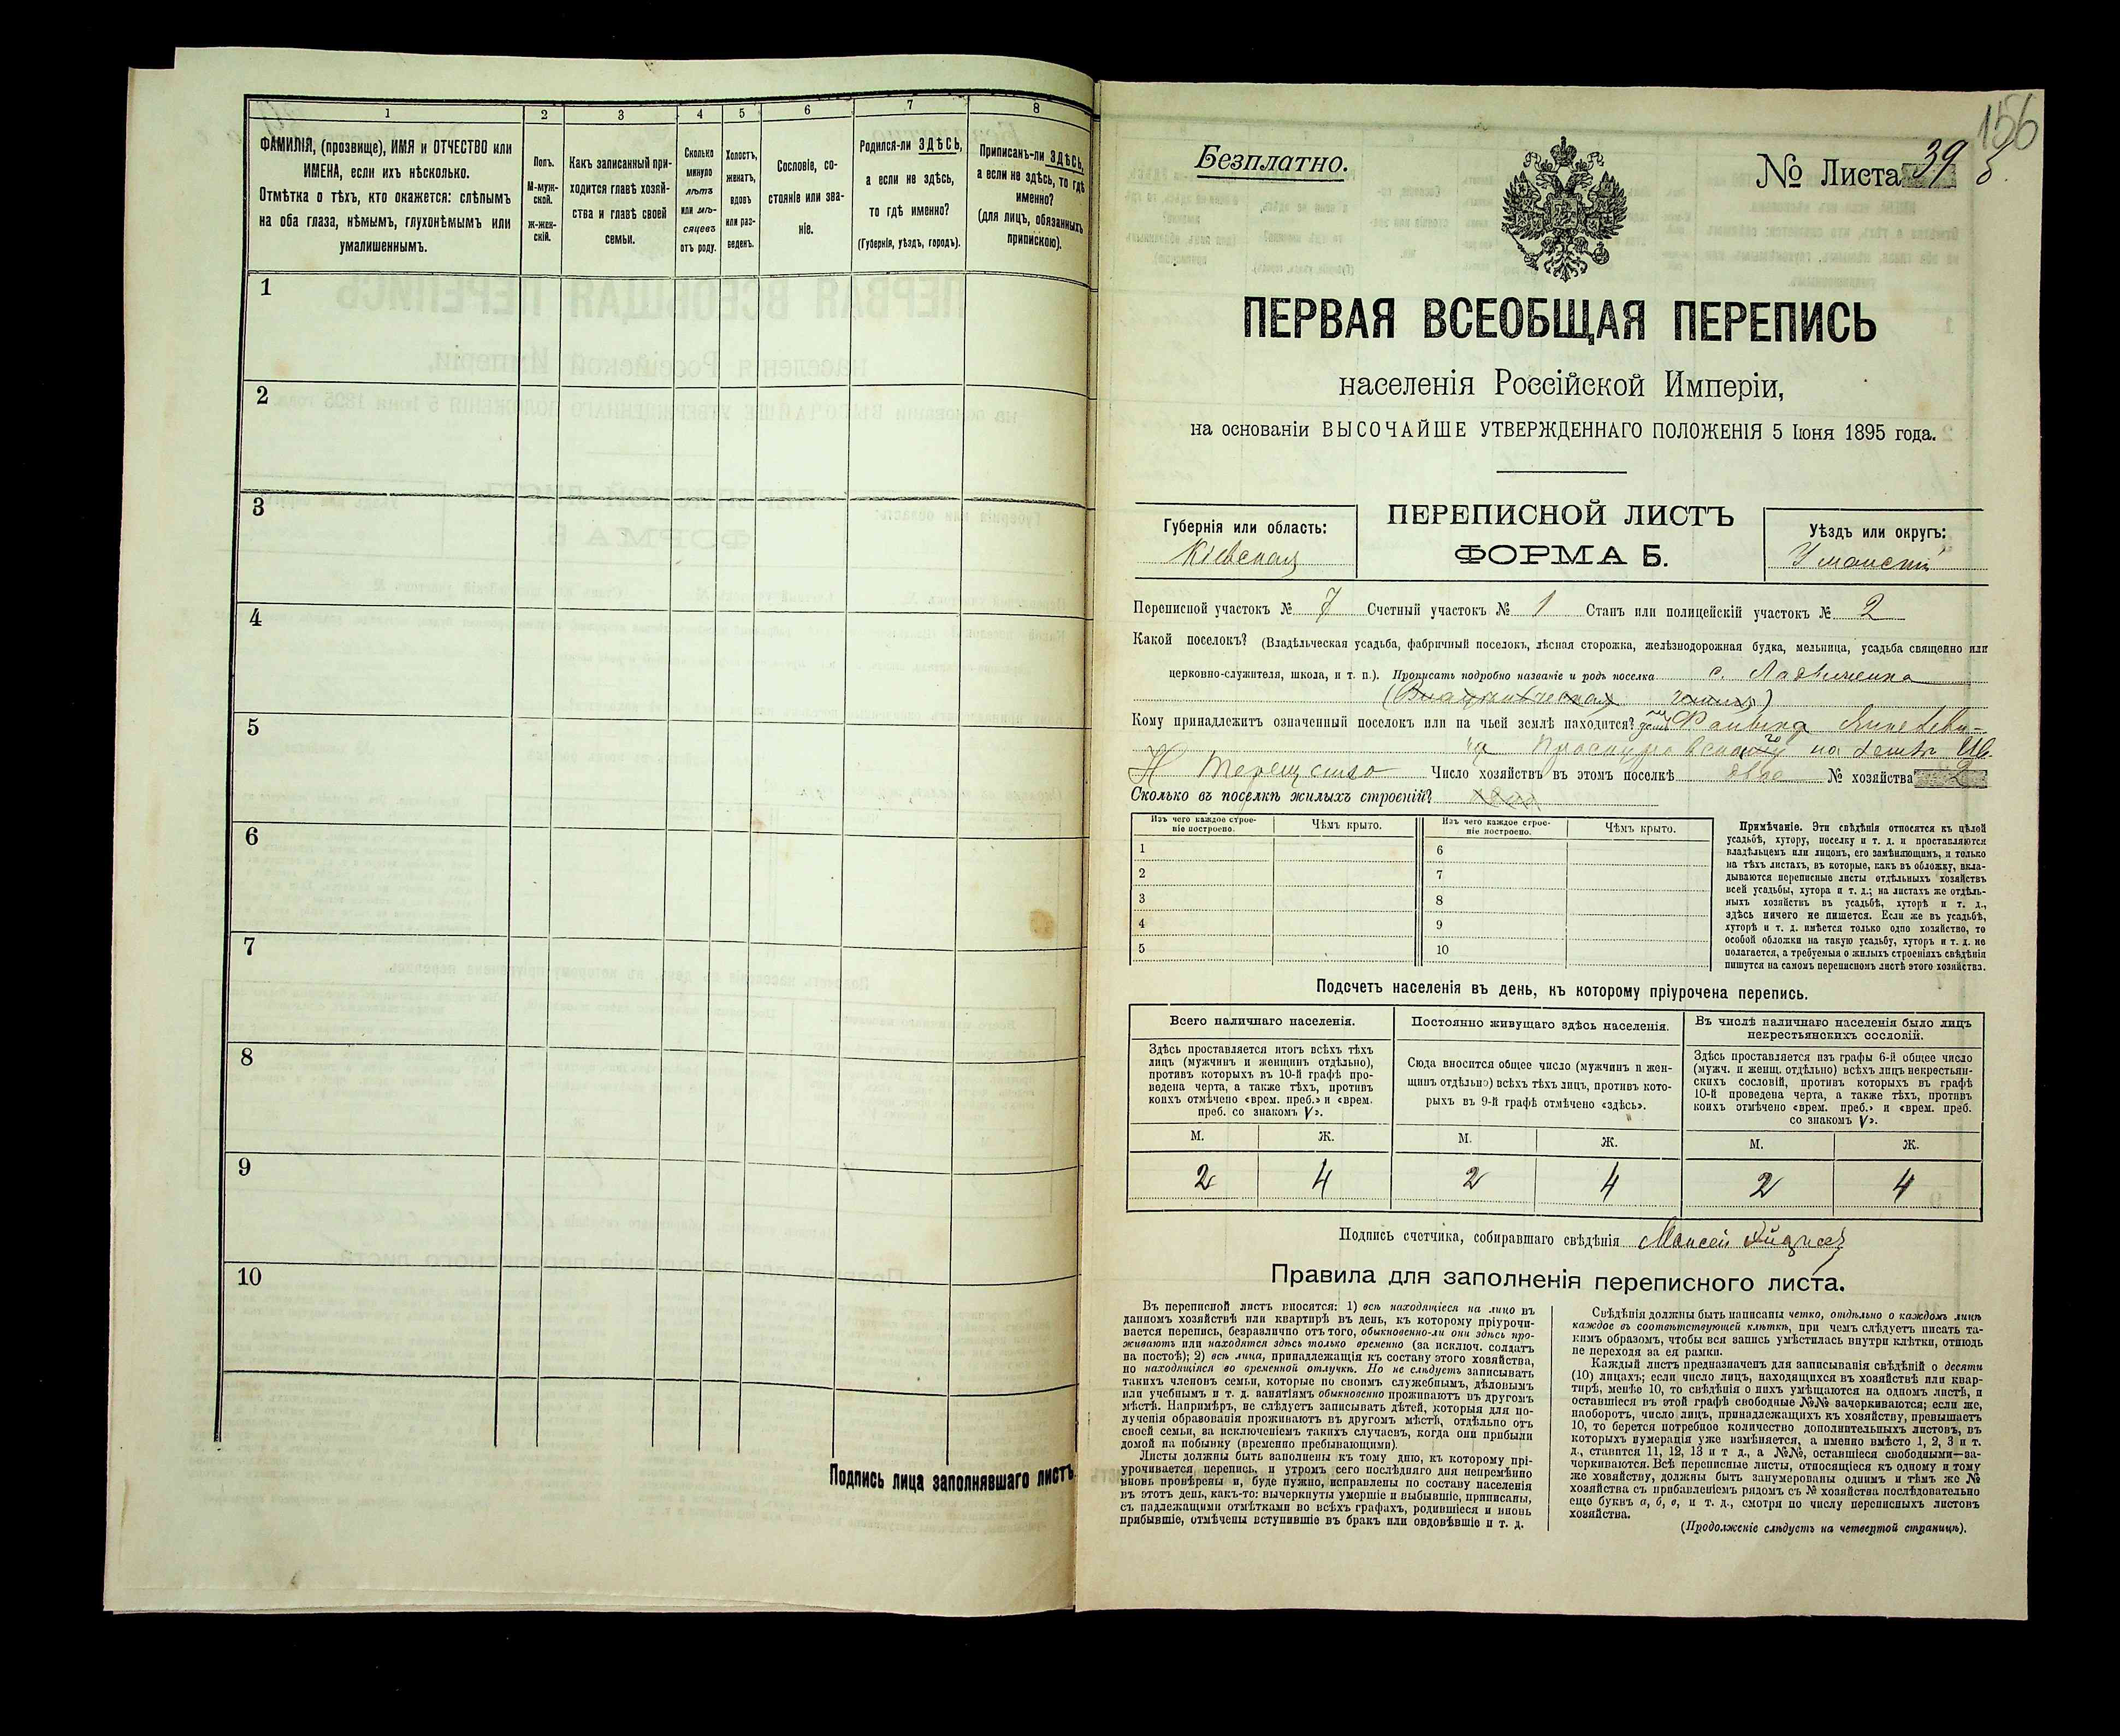 1
2
3
4
5
6
7
8
ФАМИЛІЯ, (прозвище), ИМЯ и ОТЧЕСТВО или
ИМЕНА, если ихъ нѣсколько.
Отмѣтка о тѣхъ, кто окажется: слѣпымъ
на оба глаза, нѣмымъ, глухонѣмымъ или
умалишеннымъ.
Полъ.
М-муж-
ской.
Ж-жен-
скій.
Какъ записанный при-
ходится главѣ хозяй-
ства и главѣ своей
семьи.
Сколько
минуло
лѣтъ
или мѣ-
сяцевъ
отъ роду.
Холостъ,
женатъ,
вдовъ
или раз-
веденъ.
Сословіе, со-
стояніе или зва-
ніе.
Родился-ли ЗДѢСЬ,
а если не здѣсь,
то гдѣ именно?
(Губернія, уѣздъ, городъ).
Приписанъ-ли ЗДѢСЬ,
а если не здѣсь, то гдѣ
именно?
(для лицъ, обязанныхъ
припискою).
1
2
3
4
5
6
7
8
9
10
Подпись лица заполнявшаго листъ
156
Безплатно.
№ Листа 39
ПЕРВАЯ ВСЕОБЩАЯ ПЕРЕПИСЬ
населенія Россійской Имперіи,
на основаніи ВЫСОЧАЙШЕ УТВЕРЖДЕННАГО ПОЛОЖЕНІЯ 5 Іюня 1895 года.
Губернія или область:
Кіевская
ПЕРЕПИСНОЙ ЛИСТЪ
ФОРМА Б.
Уѣздъ или округъ:
Уманскій
Переписной участокъ № 7 Счетный участокъ № 1 Станъ или полицейскій участокъ № 2
Какой поселокъ? (Владѣльческая усадьба, фабричный поселокъ, лѣсная сторожка, желѣзнодорожная будка, мельница, усадьба священно или
церковно-служителя, школа, и т. п.). Прописать подробно названіе и родъ поселка с.
Кому принадлежитъ означенный поселокъ или на чьей землѣ находится?
на землѣ
Н Терещенко Число хозяйствъ въ этомъ поселкѣ два № хозяйства 2
Сколько въ поселкѣ жилыхъ строеній?
Изъ чего каждое строе-
ніе построено.
Чѣмъ крыто.
Изъ чего каждое строе-
ніе построено.
Чѣмъ крыто.
1
2
3
4
5
6
7
8
9
10
Примѣчаніе. Эти свѣдѣнія относятся къ цѣлой
усадьбѣ, хутору, поселку и т. д. и проставляются
владѣльцемъ или лицомъ, его замѣняющимъ, и только
на тѣхъ листахъ, въ которые, какъ въ обложку, вкла-
дываются переписные листы отдѣльныхъ хозяйствъ
всей усадьбы, хутора и т. д.; на листахъ же отдѣль-
ныхъ хозяйствъ въ усадьбѣ, хуторѣ и т. д.,
здѣсь ничего не пишется. Если же въ усадьбѣ,
хуторѣ и т. д. имѣется только одно хозяйство, то
особой обложки на такую усадьбу, хуторъ и т. д. не
полагается, а требуемыя о жилыхъ строеніяхъ свѣдѣнія
пишутся на самомъ переписномъ листѣ этого хозяйства.
Подсчетъ населенія въ день, къ которому пріурочена перепись.
Всего наличнаго населенія.
Здѣсь проставляется итогъ всѣхъ тѣхъ
лицъ (мужчинъ и женщинъ отдѣльно),
противъ которыхъ въ 10-й графѣ про-
ведена черта, а также тѣхъ, противъ
коихъ отмѣчено «врем. преб.» и «врем.
преб. со знакомъ V».
Постоянно живущаго здѣсь населенія.
Сюда вносится общее число (мужчинъ и жен-
щинъ отдѣльно) всѣхъ тѣхъ лицъ, противъ кото-
рыхъ въ 9-й графѣ отмѣчено «здѣсь».
Въ числѣ наличнаго населенія было лицъ
некрестьянскихъ сословій.
Здѣсь проставляется изъ графы 6-й общее число
(мужч. и женщ. отдѣльно) всѣхъ лицъ некрестьян-
скихъ сословій, противъ которыхъ въ графѣ
10-й проведена черта, а также тѣхъ, противъ
коихъ отмѣчено «врем. преб.» и «врем. преб.
со знакомъ V».
М. Ж. М. Ж. М. Ж.
2 4 2 4 2 4
Подпись счетчика, собиравшаго свѣдѣнія Моисей
Правила для заполненія переписного листа.
Въ переписной листъ вносятся: 1) всѣ находящіеся на лицо въ
данномъ хозяйствѣ или квартирѣ въ день, къ которому пріурочи-
вается перепись, безразлично отъ того, обыкновенно-ли они здѣсь про-
живаютъ или находятся здѣсь только временно (за исключ. солдатъ
на постоѣ); 2) всѣ лица, принадлежащія къ составу этого хозяйства,
но находящіяся во временной отлучкѣ. Но не слѣдуетъ записывать
такихъ членовъ семьи, которые по своимъ служебнымъ, дѣловымъ
или учебнымъ и т. д. занятіямъ обыкновенно проживаютъ въ другомъ
мѣстѣ. Напримѣръ, не слѣдуетъ записывать дѣтей, которыя для по-
лученія образованія проживаютъ въ другомъ мѣстѣ, отдѣльно отъ
своей семьи, за исключеніемъ такихъ случаевъ, когда они прибыли
домой на побывку (временно пребывающими).
Листы должны быть заполнены къ тому дню, къ которому прі-
урочивается перепись, и утромъ сего послѣдняго дня непремѣнно
вновь провѣрены и, буде нужно, исправлены по составу населенія
въ этотъ день, какъ-то: вычеркнуты умершіе и выбывшіе, приписаны,
съ надлежащими отмѣтками во всѣхъ графахъ, родившіеся и вновь
прибывшіе, отмѣчены вступившіе въ бракъ или овдовѣвшіе и т. д.
Свѣдѣнія должны быть написаны четко, отдѣльно о каждомъ лицѣ
каждое въ соотвѣтствующей клѣткѣ, при чемъ слѣдуетъ писать та-
кимъ образомъ, чтобы вся запись умѣстилась внутри клѣтки, отнюдь
не переходя за ея рамки.
Каждый листъ предназначенъ для записыванія свѣдѣній о десяти
(10) лицахъ; если число лицъ, находящихся въ хозяйствѣ или квар-
тирѣ, менѣе 10, то свѣдѣнія о нихъ умѣщаются на одномъ листѣ, и
оставшіеся въ этой графѣ свободные №№ зачеркиваются; если же,
наоборотъ, число лицъ, принадлежащихъ къ хозяйству, превышаетъ
10, то берется потребное количество дополнительныхъ листовъ, въ
которыхъ нумерація уже измѣняется, а именно вмѣсто 1, 2, 3 и т.
д., ставятся 11, 12, 13 и т д., а №№, оставшіеся свободными—за-
черкиваются. Всѣ переписные листы, относящіеся къ одному и тому
же хозяйству, должны быть занумерованы однимъ и тѣмъ же №
хозяйства съ прибавленіемъ рядомъ съ № хозяйства послѣдовательно
еще буквъ а, б, в, и т. д., смотря по числу переписныхъ листовъ
хозяйства.
(Продолженіе слѣдуетъ на четвертой страницѣ).